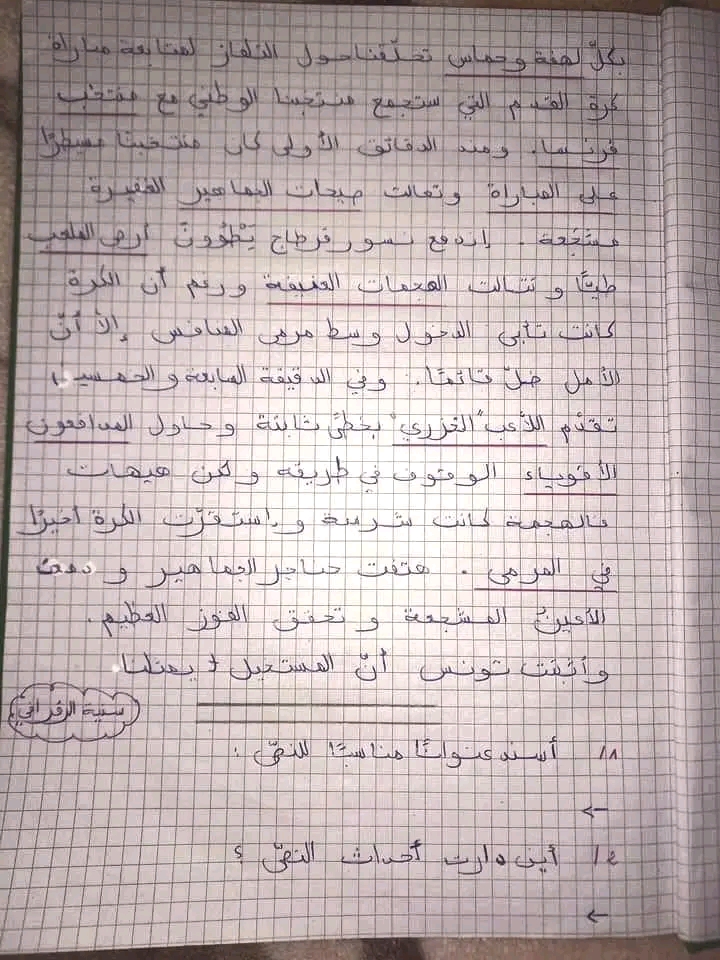 بكلّ لهفة وحماس تحلّقنا حول التلفاز لمتابعة مباراة
كرة القدم التي ستجمع منتخبنا الوطني مع منتخب
فرنسا. ومنذ الدقائق الأولى كان منتخبنا مسيطرًا
على المباراة وتعالت صيحات الجماهير الغفيرة
مشجّعة. إندفع نسور قرطاج يَطْؤُونَ أرض الملعب
طيًّا و تتالت الهجمات العنيفة ورغم أن الكرة
كانت تأبى الدخول وسط مرمى المنافس إلّا أنّ
الأمل ضلّ قائمًا. وفي الدقيقة السابعة والخمسين
تقدّم اللاعب "الخزري" بخطًى ثابتة وحاول المدافعون
الأقوياء الوقوف في طريقه ولكن هيهات
فالهجمة كانت شرسة وإستقرّت الكرة أخيرًا
في المرمى. هتفت حناجر الجماهير و دمعت
الأعين المشجعة و تحقق الفوز العظيم.
وأثبتت تونس أنّ المستحيل لا يمثلنا.
سنية الزفراني
1/ أسند عنوانًا مناسبًا للنصّ :
←
2/ أين دارت أحداث النصّ ؟
←